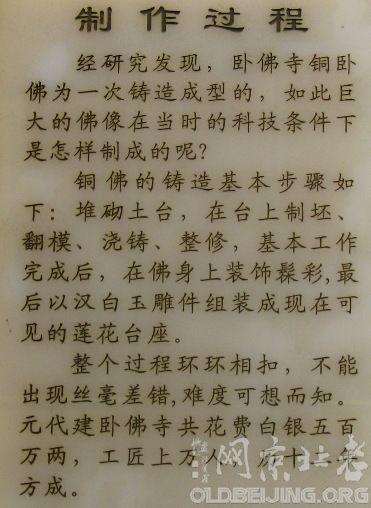 制作过程
经研究发现，卧佛寺铜卧
佛为一次铸造成型的，如此巨
大的佛像在当时的科技条件下
是怎样制成的呢？
铜佛的铸造基本步骤如
下：堆砌土台，在台上制坯、
翻模、浇铸、整修，基本工作
完成后，在佛身上装饰髹彩，最
后以汉白玉雕件组装成现在可
见的莲花台座。
整个过程环环相扣，不能
出现丝毫差错，难度可想而知。
元代建卧佛寺共花费白银五百
万两，工匠上万人，历十二年
方成。
老北京网
OLDBEIJING.ORG